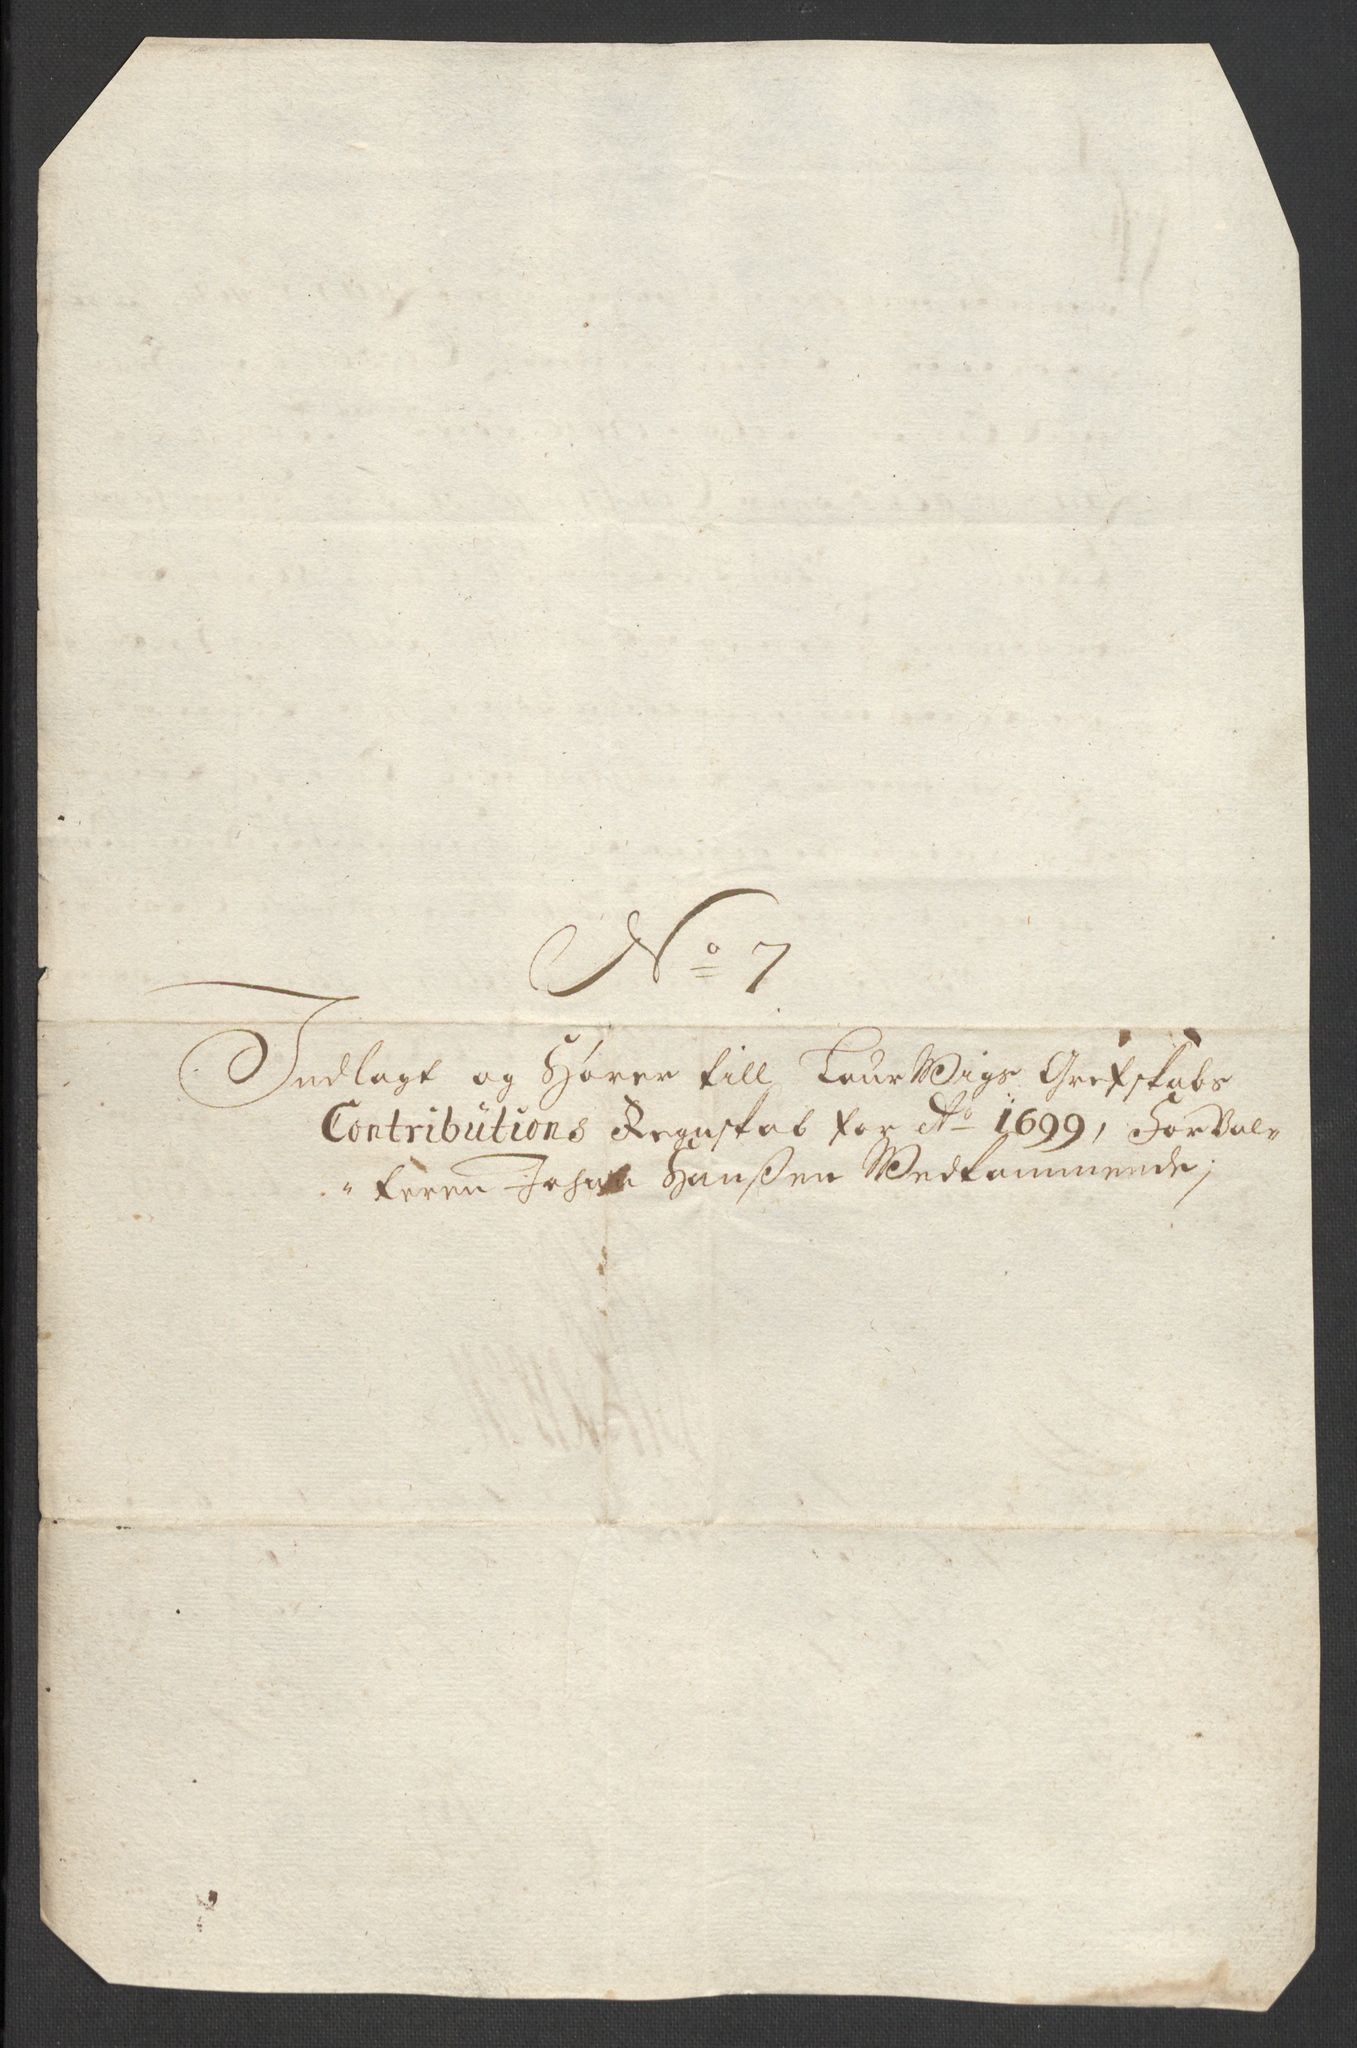 No 7
Indlagt og Hører till LaurWigs Grefskabs
Contributions Regnskab for Ao 1699, ForVal„
„teren Johan Hanßen Wedkommende;